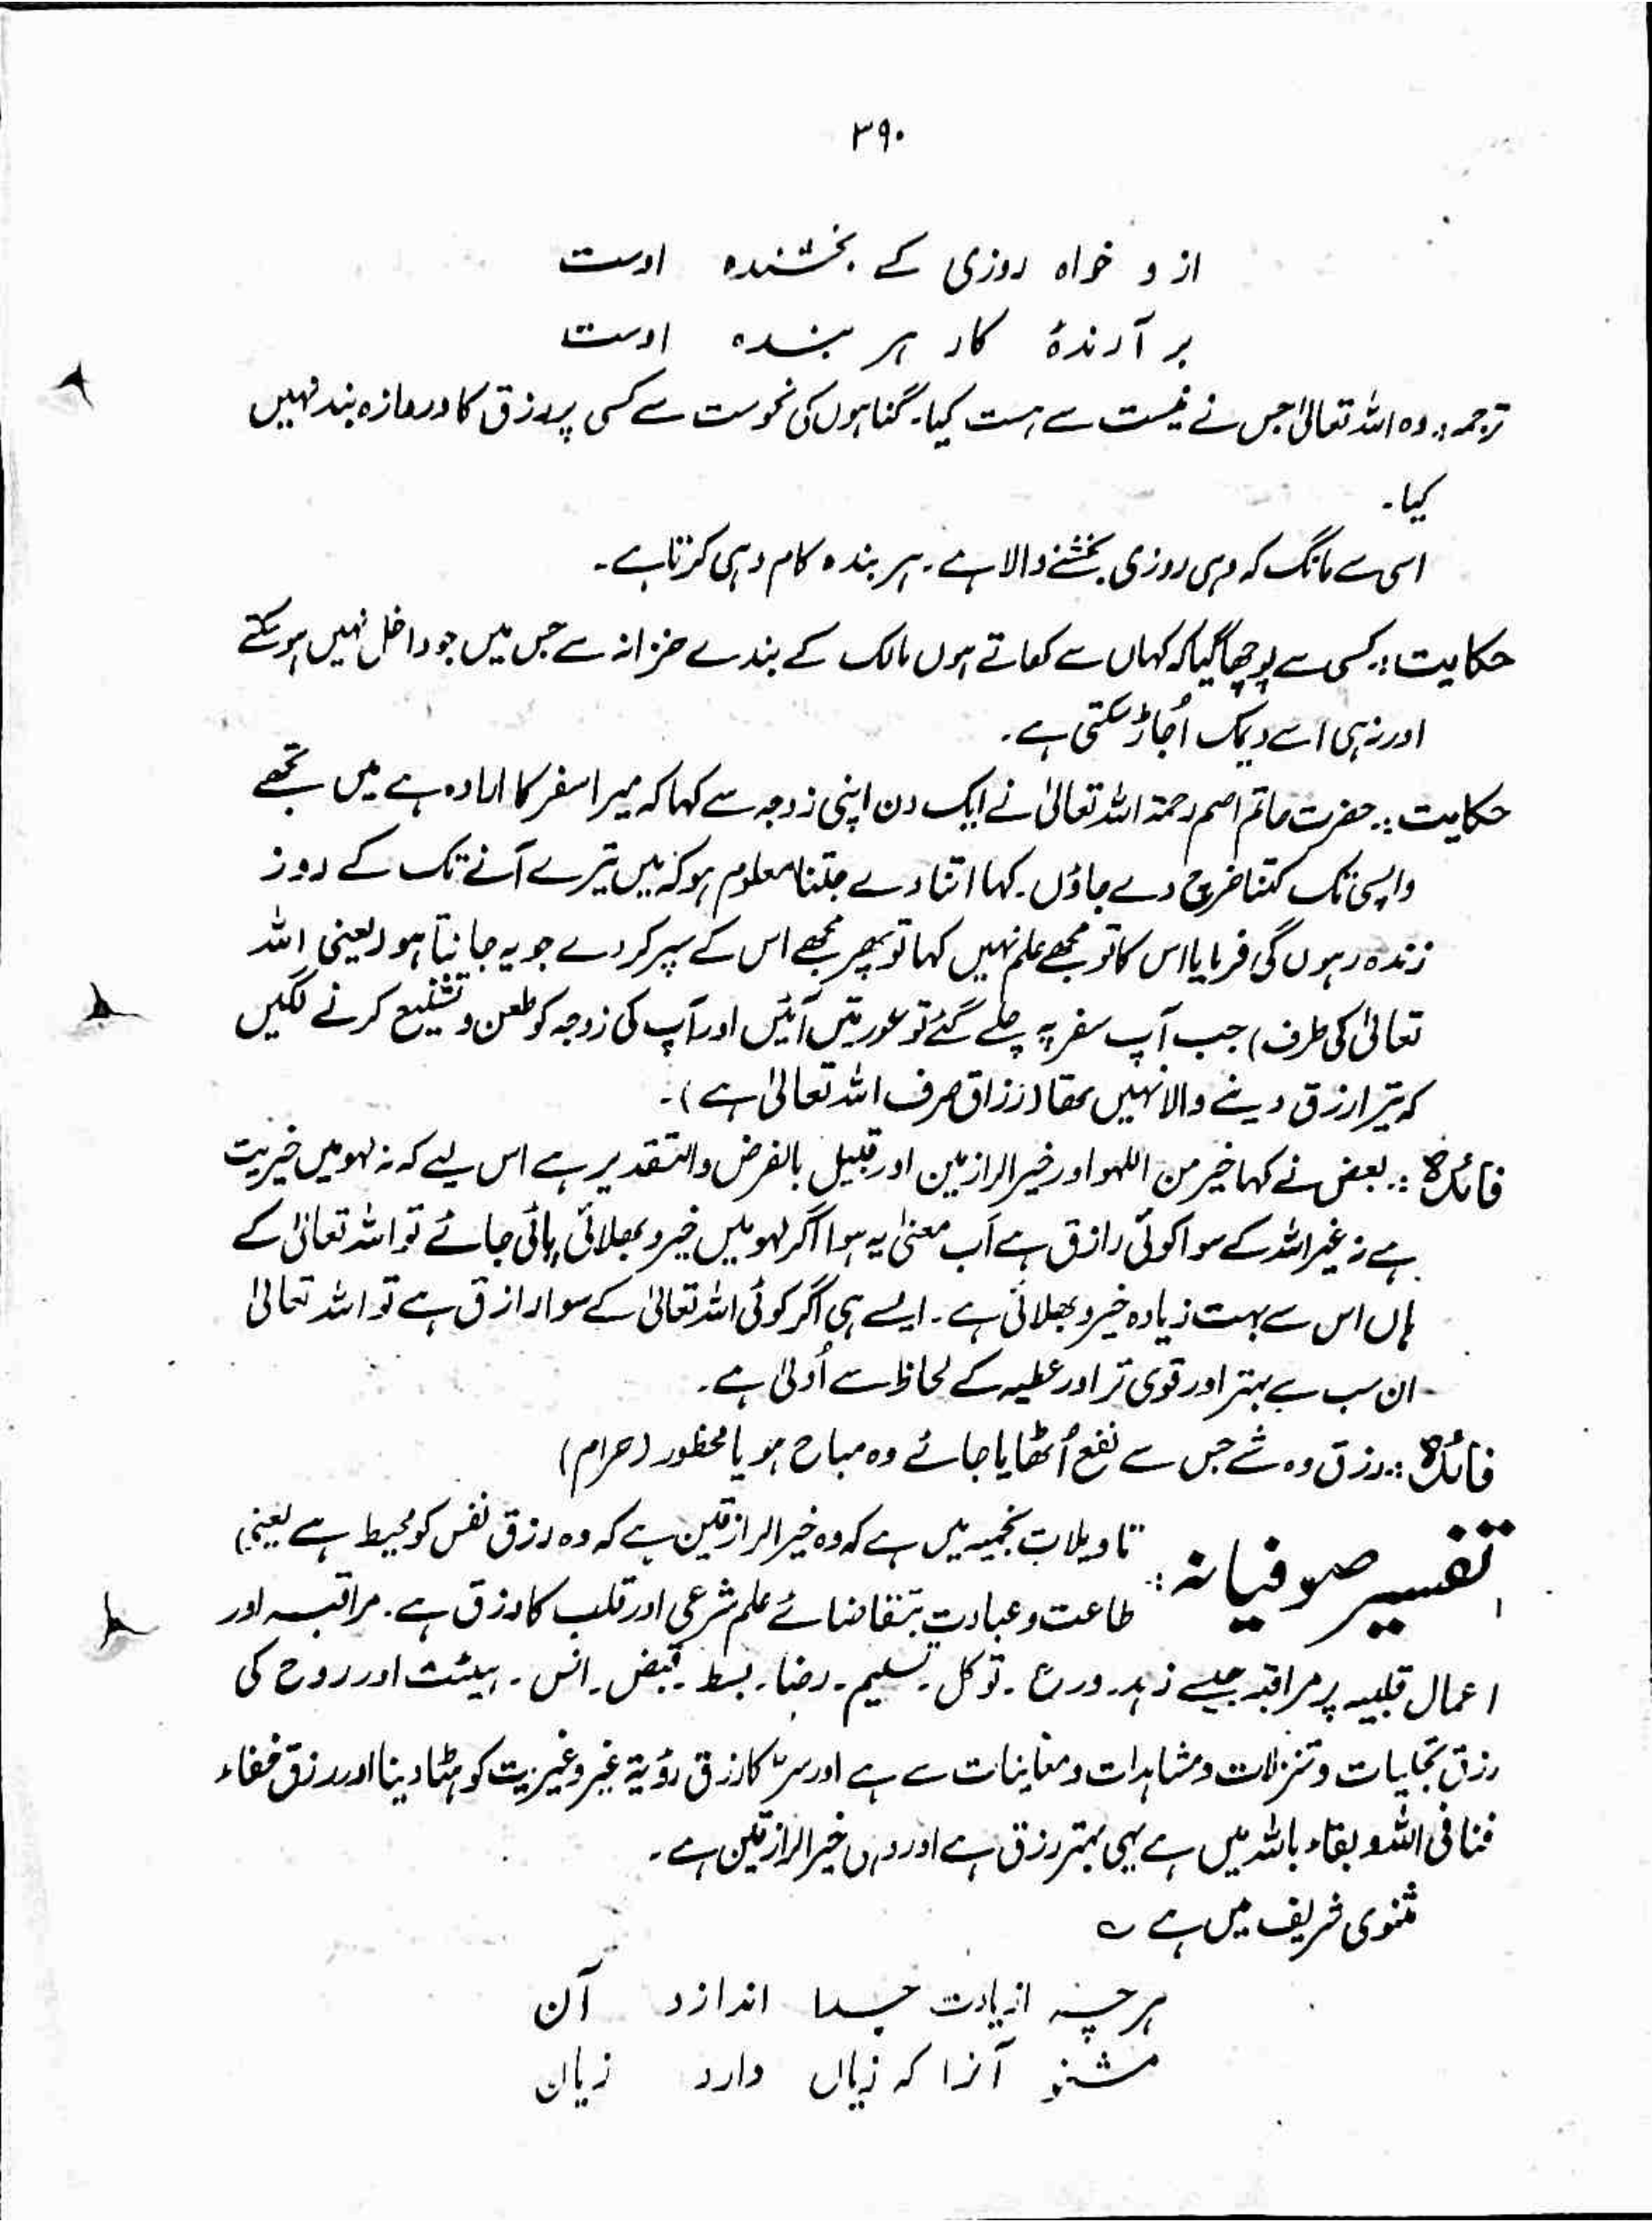 ۳۹۰
از و خواہ روزی کے بخشندہ اوست
بر آرندۂ کار ہر بندہ اوست
ترجمہ:۔ وہ اللہ تعالیٰ جس نے نیست سے ہست کیا۔ گناہوں کی نحوست سے کسی پر رزق کا دروازہ بند نہیں
کیا۔
اسی سے مانگ کہ وہی روزی بخشنے والا ہے۔ ہر بندہ کام وہی کرتا ہے۔
حکایت:۔ کسی سے پوچھا گیا کہ کہاں سے کھاتے ہوں مالک کے بندے خزانہ سے جس میں جو داخل نہیں ہو سکتے
اور نہ ہی اسے دیمک اُجاڑ سکتی ہے۔
حکایت:۔ حضرت حاتم اصم رحمۃ اللہ تعالیٰ نے ایک دن اپنی زوجہ سے کہا کہ میرا سفر کا ارادہ ہے میں تجھے
واپسی تک کتنا خرچ دے جاؤں۔ کہا اتنا دے جتنا معلوم ہو کہ میں تیرے آنے تک کے روز
زندہ رہوں گی فرمایا اس کا تو مجھے علم نہیں کہا تو پھر مجھے اس کے سپر کر دے جو یہ جانتا ہو (یعنی اللہ
تعالیٰ کی طرف) جب آپ سفر پہ چلے گئے تو عورتیں آئیں اور آپ کی زوجہ کو طعن و تشنیع کرنے لگیں
کہ تیرا رزق دینے والا نہیں تھا (رزاق صرف اللہ تعالیٰ ہے)۔
فائدہ:۔ بعض نے کہا خیر من اللہو اور خیر الرازقین اور قبیل بالفرض والتقدیر ہے اس لیے کہ نہ لہو میں خیریت
ہے نہ غیر اللہ کے سوا کوئی رازق ہے اَب معنیٰ یہ ہوا اگر لہو میں خیر و بھلائی پائی جائے تو اللہ تعالیٰ کے
ہاں اس سے بہت زیادہ خیر و بھلائی ہے۔ ایسے ہی اگر کوئی اللہ تعالیٰ کے سوا رازق ہے تو اللہ تعالیٰ
ان سب سے بہتر اور قوی تر اور عطیہ کے لحاظ سے اُولیٰ ہے۔
فائدہ:۔ رزق وہ شے جس سے نفع اُٹھایا جائے وہ مباح ہو یا محظور (حرام)
تفسیر صوفیانہ:۔ تاویلات نجمیہ میں ہے کہ وہ خیر الرازقین ہے کہ وہ رزق نفس کو محیط ہے یعنی
طاعت و عبادت بتقاضائے علم شرعی اور قلب کا رزق ہے۔ مراقبہ اور
اعمال قلبیہ پر مراقبہ جیسے زہد۔ ورع۔ توکل۔ تسلیم۔ رضا۔ بسط۔ قبض۔ انس۔ ہیئت اور روح کی
رزق تجلیات و تنزلات و مشاہدات و معاینات سے ہے اور سر کا رزق رؤیۃ غیر و غیریت کو ہٹا دینا اور رزق خفاء
فنا فی اللہ و بقاء باللہ میں ہے یہی بہتر رزق ہے اور وہی خیر الرازقین ہے۔
مثنوی شریف میں ہے ؎
ہرچہ از یارت جدا اندازد آن
مشنو آنرا کہ زیاں دارد زیاں